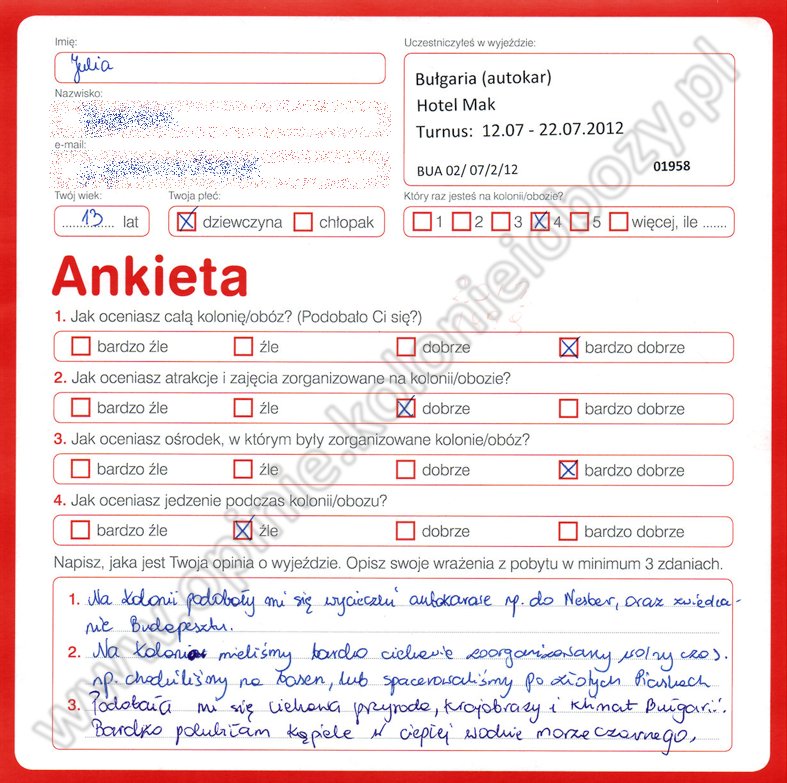 Imię:
Julia
Nazwisko:
e-mail:
Twój wiek:
13 lat
Twoja płeć:
dziewczyna chłopak
Uczestniczyłeś w wyjeździe:
Bułgaria (autokar)
Hotel Mak
Turnus: 12.07 - 22.07.2012
BUA 02/ 07/2/12 01958
Który raz jesteś na kolonii/obozie?
1 2 3 4 5 więcej, ile .......
Ankieta
1. Jak oceniasz całą kolonię/obóz? (Podobało Ci się?)
bardzo źle źle dobrze bardzo dobrze
2. Jak oceniasz atrakcje i zajęcia zorganizowane na kolonii/obozie?
bardzo źle źle dobrze bardzo dobrze
3. Jak oceniasz ośrodek, w którym były zorganizowane kolonie/obóz?
bardzo źle źle dobrze bardzo dobrze
4. Jak oceniasz jedzenie podczas kolonii/obozu?
bardzo źle źle dobrze bardzo dobrze
Napisz, jaka jest Twoja opinia o wyjeździe. Opisz swoje wrażenia z pobytu w minimum 3 zdaniach.
1. Na kolonii podobały mi się wycieczki autokarase np. do Neseber, oraz zwiedza-
nie Budapesztu.
2. Na koloni mieliśmy bardzo ciekawie zoorganizowany wolny czas.
np. chodziliśmy na basen, lub spacerowaliśmy po złotych Piaskach
3. Podobała mi się ciekawa przyroda, krajobrazy i klimat Bułgarii.
Bardzo polubiłam kąpiele w ciepłej wodnie morze czarnego.
www.opinie.kolonieiobozy.pl